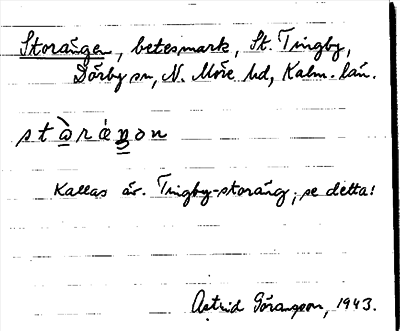 Storängen, betesmark, St. Tingby,
Dörby sn, N. Möre hd, Kalm. län.
stò̱ráŋ̱on
Kallas äv. Tingby-storäng; se detta!
Astrid Göransson, 1943.